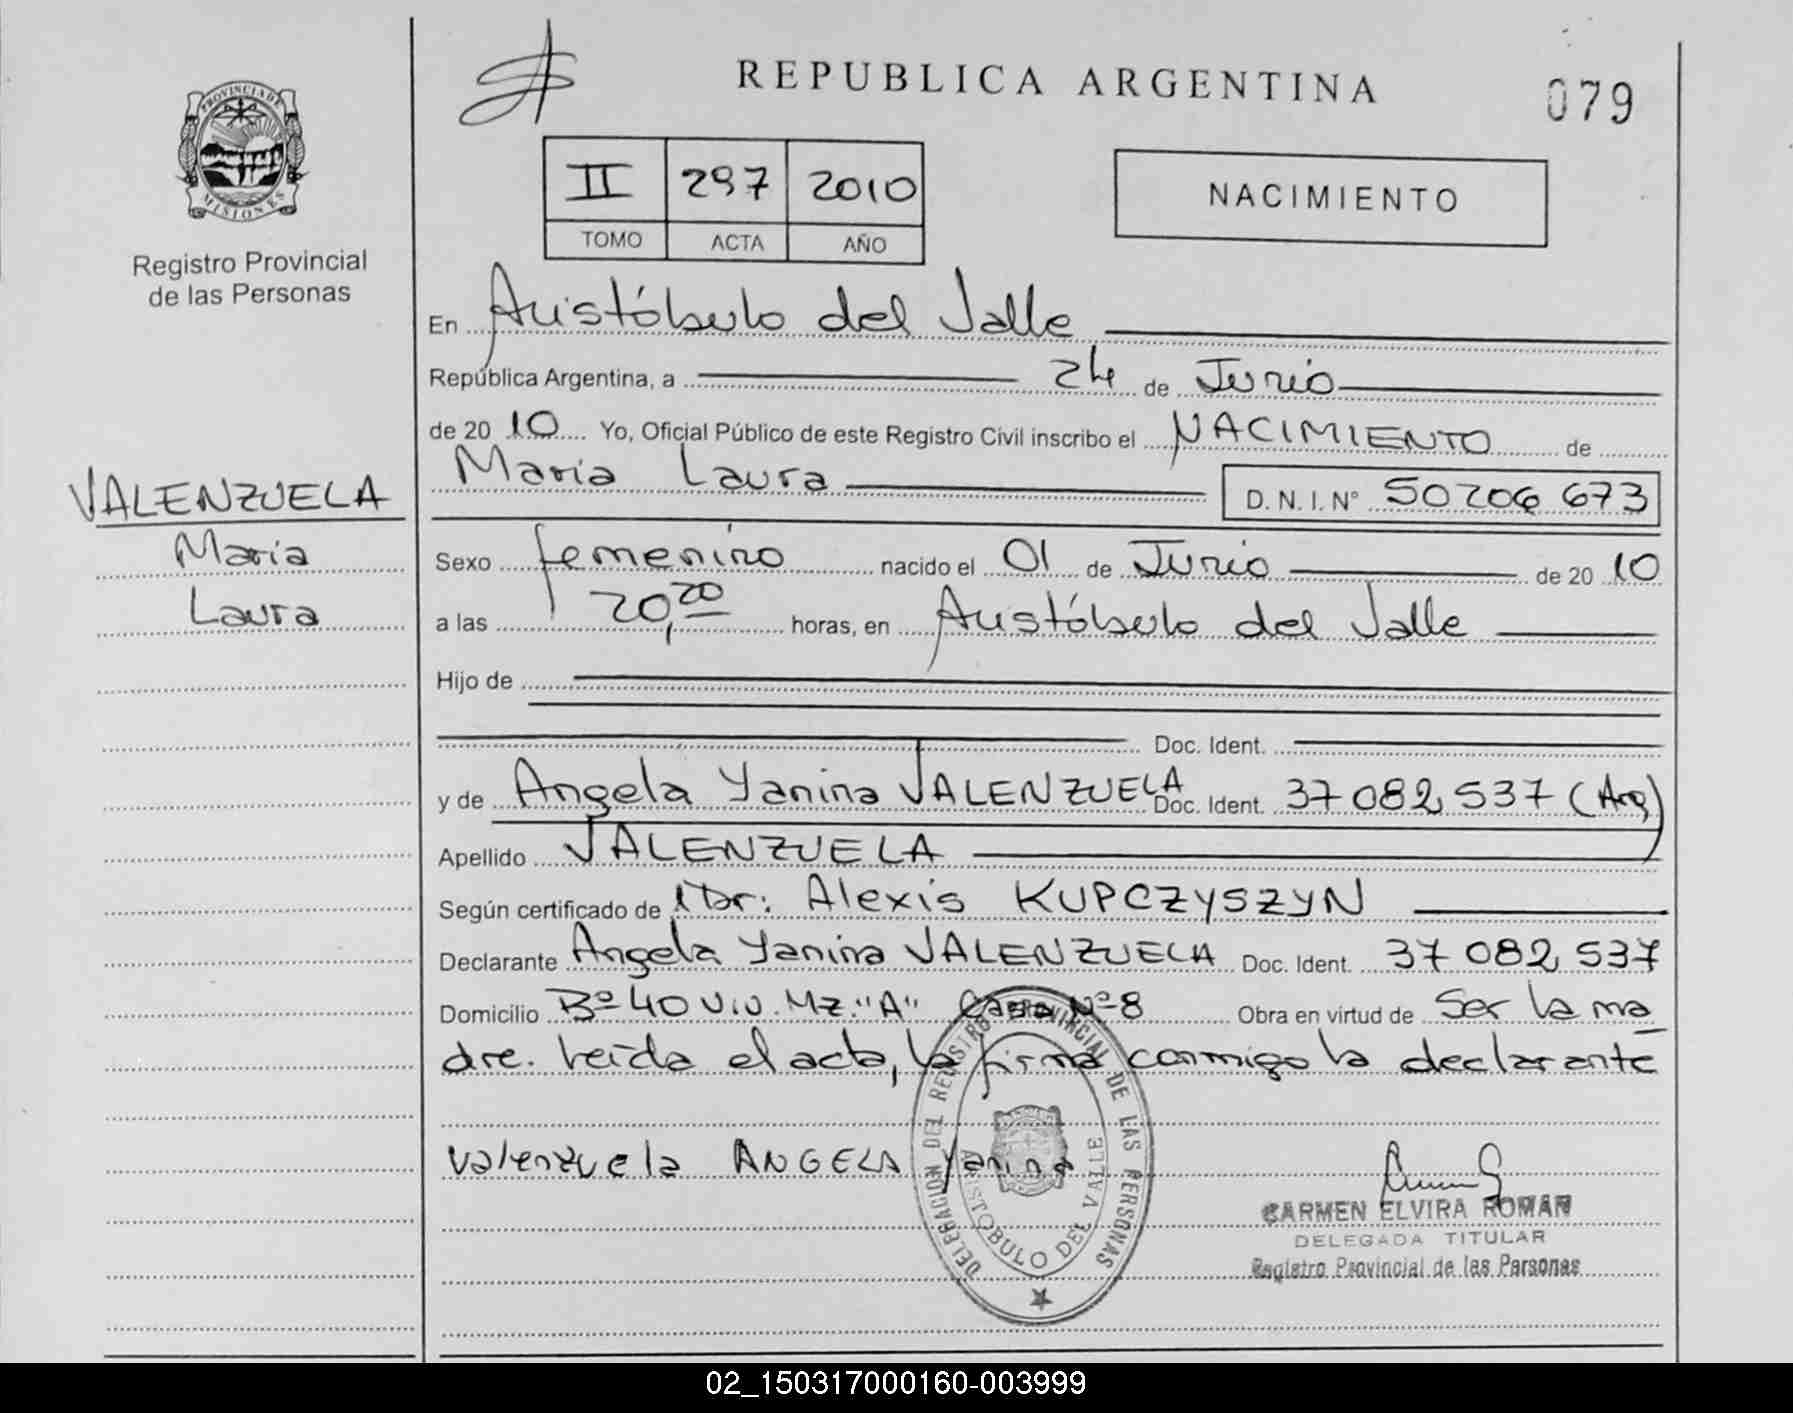 PROVINCIA DE
MISIONES
Registro Provincial
de las Personas
VALENZUELA
Maria
Laura
REPUBLICA ARGENTINA
079
II 297 2010
TOMO ACTA AÑO
NACIMIENTO
En Aristóbulo del Valle
República Argentina, a 24 de Junio
de 20 10 Yo, Oficial Público de este Registro Civil inscribo el NACIMIENTO de
Maria Laura D.N.I.Nº 50206 673
Sexo femenino nacido el 01 de Junio de 20 10
a las 20,20 horas, en Aristóbulo del Valle
Hijo de
Doc. Ident.
y de Angela Yanina VALENZUELA Doc. Ident. 37 082 537 (Arg)
Apellido VALENZUELA
Según certificado de Dr: Alexis KUPCZYSZYN
Declarante Angela Yanina VALENZUELA Doc. Ident. 37 082 537
Domicilio Bº 40 Viv. Mz. "A" Casa Nº 8 Obra en virtud de Ser la ma
dre. leída el acta, la firma conmigo la declarante
Valenzuela ANGELA Yanina
DELEGACION DEL REGISTRO PROVINCIAL DE LAS PERSONAS
ARISTOBULO DEL VALLE
CARMEN ELVIRA ROMAN
DELEGADA TITULAR
Registro Provincial de las Personas
02_150317000160-003999